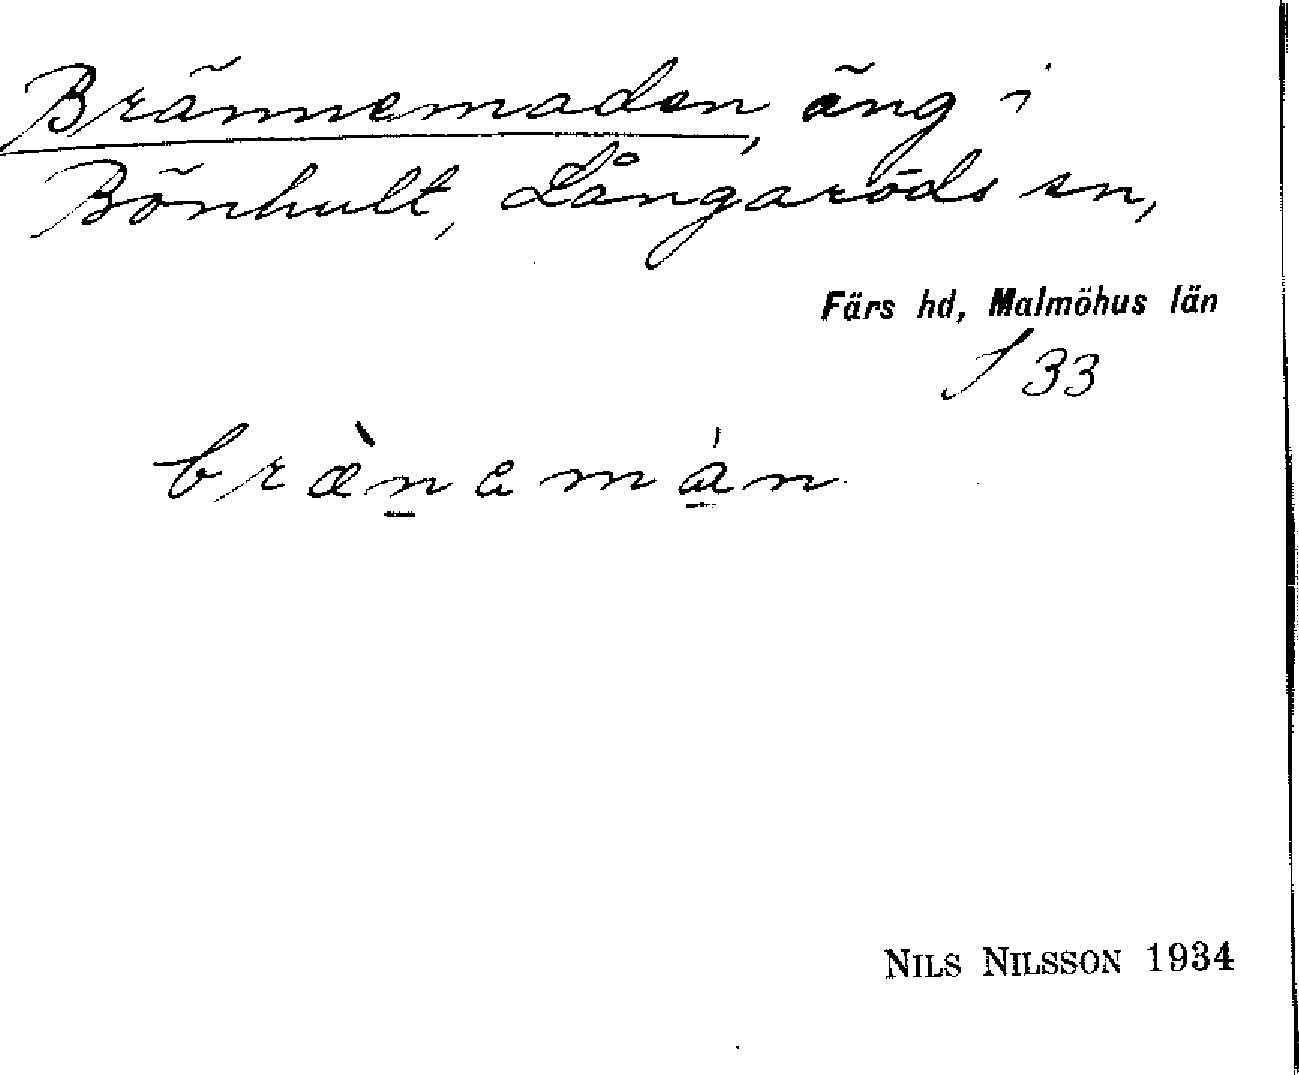 Brännemaden, äng i
Bönhult, Långaröds sn,
Färs hd, Malmöhus län
S 33
bræ̀n̲amá̲n
NILS NILSSON 1934